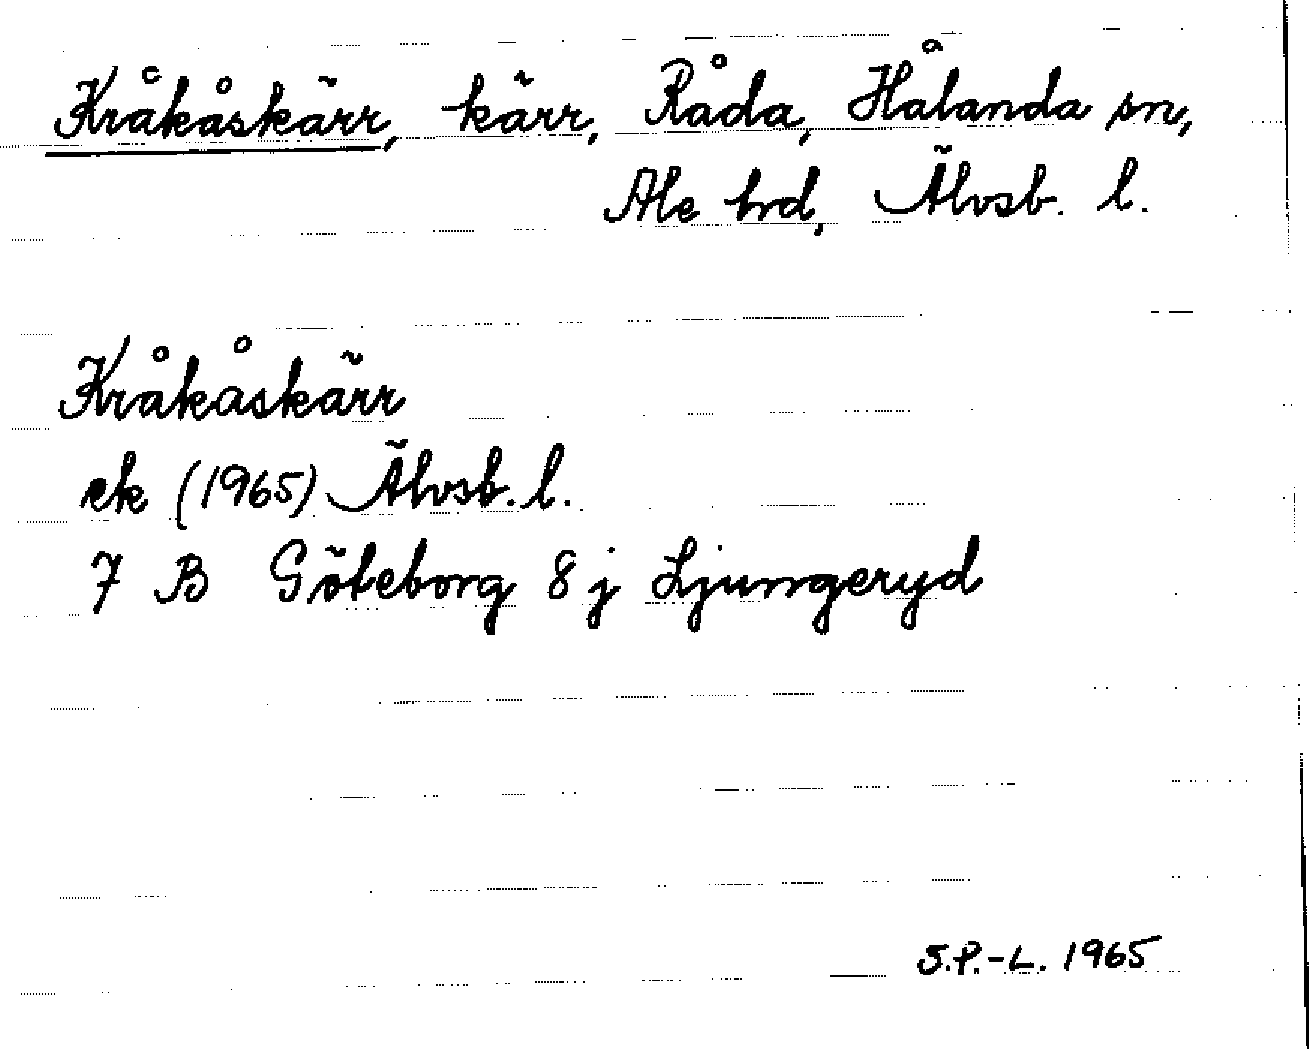 Kråkåskärr, kärr, Råda, Hålanda sn,
Ale hrd, Älvsb. l.
Kråkåskärr
ek (1965) Älvsb. l.
7 B Göteborg 8 j Ljungeryd
S.P.-L. 1965